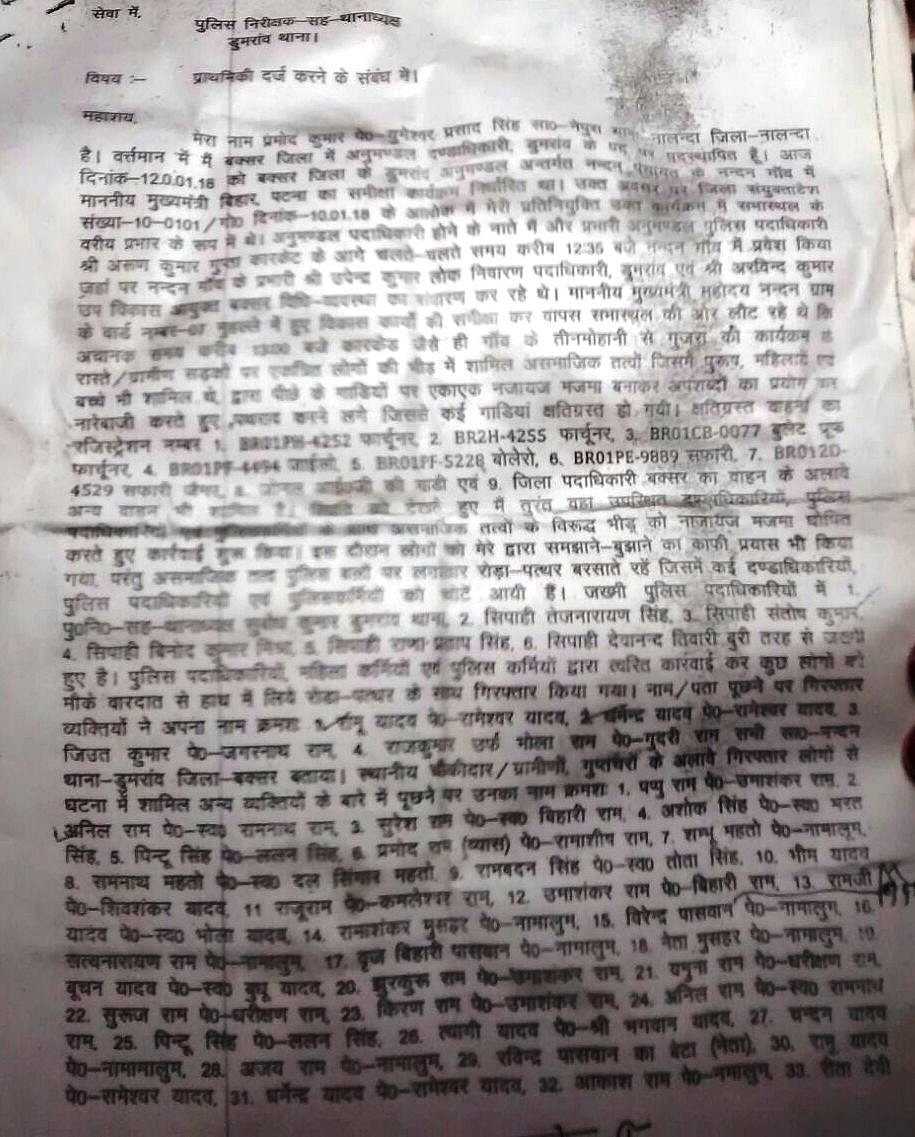 सेवा में,
पुलिस निरीक्षक–सह–थानाध्यक्ष
डुमरांव थाना।
विषय :– प्राथमिकी दर्ज करने के संबंध में।
महाशय,
मेरा नाम प्रमोद कुमार पे०–युगेश्वर प्रसाद सिंह सा०–नेपुरा थाना–नालन्दा जिला–नालन्दा
है। वर्त्तमान में मैं बक्सर जिला में अनुमण्डल दण्डाधिकारी, डुमरांव के पद पर पदस्थापित हूँ। आज
दिनांक–12.0.01.18 को बक्सर जिला के डुमरांव अनुमण्डल अन्तर्गत नन्दन पंचायत के नन्दन गाँव में
माननीय मुख्यमंत्री बिहार, पटना का समीक्षा कार्यक्रम निर्धारित था। उक्त अवसर पर जिला संयुक्तादेश
संख्या–10–0101/गो० दिनांक–10.01.18 के आलोक में मेरी प्रतिनियुक्ति उक्त कार्यक्रम में सभास्थल के
वरीय प्रभार के रूप में थे। अनुमण्डल पदाधिकारी होने के नाते मैं और प्रभारी अनुमण्डल पुलिस पदाधिकारी
श्री अरूण कुमार गुप्ता कारकेट के आगे चलते–चलते समय करीब 12:35 बजे नन्दन गाँव में प्रवेश किया
जहां पर नन्दन गाँव के प्रभारी श्री उपेन्द्र कुमार लोक निवारण पदाधिकारी, डुमरांव एवं श्री अरविन्द कुमार
उप विकास आयुक्त बक्सर विधि–व्यवस्था का संधारण कर रहे थे। माननीय मुख्यमंत्री महोदय नन्दन ग्राम
के वार्ड नम्बर–07 मुहल्ले में हुए विकास कार्यों की समीक्षा कर वापस सभास्थल की ओर लौट रहे थे कि
अचानक समय करीब 13:00 बजे कारकेड जैसे ही गाँव के तीनमोहानी से गुजरा की कार्यक्रम के
रास्ते/ग्रामीण सड़कों पर एकत्रित लोगों की भीड़ में शामिल असमाजिक तत्वों जिसमें पुरूष, महिलायें एवं
बच्चे भी शामिल थे, द्वारा पीछे के गाडियों पर एकाएक नजायज मजमा बनाकर अपशब्दों का प्रयोग कर
नारेबाजी करते हुए पथराव करने लगे जिससे कई गाडियां क्षतिग्रस्त हो गयी। क्षतिग्रस्त वाहनों का
रजिस्ट्रेशन नम्बर 1. BR01PH-4252 फार्चूनर, 2. BR2H-4255 फॉर्चूनर, 3. BR01CB-0077 बुलेट प्रूफ
फार्चूनर, 4. BR01PF- जाईलो, 5. BR01PF-5228 बोलेरो, 6. BR01PE-9889 सफारी, 7. BR012D-
4529 सफारी 8. की गाडी एवं 9. जिला पदाधिकारी बक्सर का वाहन के अलावे
अन्य वाहन भी शामिल है। स्थिति को देखते हुए मैं तुरंत वहा उपस्थित दण्डाधिकारियों, पुलिस
पदाधिकारियों एवं पुलिसकर्मियों के साथ असमाजिक तत्वों के विरूद्ध भीड़ को नाजायज मजमा घोषित
करते हुए कार्रवाई शुरू किया। इस दौरान लोगों को मेरे द्वारा समझाने–बुझाने का काफी प्रयास भी किया
गया, परंतु असमाजिक तत्व पुलिस बलों पर लगातार रोड़ा–पत्थर बरसाते रहें जिसमें कई दण्डाधिकारियों,
पुलिस पदाधिकारियों एवं पुलिसकर्मियों को चोटें आयी हैं। जख्मी पुलिस पदाधिकारियों में 1.
पु०नि०–सह–थानाध्यक्ष सुबोध कुमार डुमरांव थाना, 2. सिपाही तेजनारायण सिंह, 3. सिपाही संतोष कुमार,
4. सिपाही बिनोद कुमार मिश्रा, 5. सिपाही राणा प्रताप सिंह, 6. सिपाही देवानन्द तिवारी बुरी तरह से जख्मी
हुए है। पुलिस पदाधिकारियों, महिला कर्मियों एवं पुलिस कर्मियों द्वारा त्वरित कारवाई कर कुछ लोगों को
मौके वारदात से हाथ में लिये रोडा–पत्थर के साथ गिरफ्तार किया गया। नाम/पता पूछने पर गिरफ्तार
व्यक्तियों ने अपना नाम क्रमशः 1. रामू यादव पे०–रामेश्वर यादव, 2. धर्मेन्द्र यादव पे०–रामेश्वर यादव, 3.
जिउत कुमार पे०–जगरनाथ राम, 4. राजकुमार उर्फ भोला राम पे०–गुदरी राम सभी सा०–नन्दन
थाना–डुमरांव जिला–बक्सर बताया। स्थानीय चौकीदार/ग्रामीणों, गुप्तचरों के अलावे गिरफ्तार लोगों से
घटना में शामिल अन्य व्यक्तियों के बारे में पूछने पर उनका नाम क्रमशः 1. पप्पु राम पे०–उमाशंकर राम, 2.
अनिल राम पे०–स्व० रामनाथ राम, 3. सुरेश राम पे०–स्व० बिहारी राम, 4. अशोक सिंह पे०–स्व० भरत
सिंह, 5. पिन्टू सिंह पे०–ललन सिंह, 6. प्रमोद राम (व्यास) पे०–रामाशीष राम, 7. शम्भू महतो पे०–नामालूम,
8. रामनाथ महतो पे०–स्व० दल सिंगार महतो, 9. रामबदन सिंह पे०–स्व० तोता सिंह, 10. भीम यादव
पे०–शिवशंकर यादव, 11 राजूराम पे०–कमलेश्वर राम, 12. उमाशंकर राम पे०–बिहारी राम, 13. रामजी
यादव पे०–स्व० भोला यादव, 14. रामाशंकर मुसहर पे०–नामालुम, 15. विरेन्द्र पासवान पे०–नामालुम, 16.
सत्यनारायण राम पे०–नामालुम, 17. वृज बिहारी पासवान पे०–नामालुम, 18. नेता मुसहर पे०–नामालुम, 19.
बूचन यादव पे०–स्व० बुधू यादव, 20. झुरकुरू राम पे०–उमाशंकर राम, 21. यमुना राम पे०–धरीक्षण राम,
22. सुरूज राम पे०–धरीक्षण राम, 23. किरण राम पे०–उमाशंकर राम, 24. अनिल राम पे०–स्व० रामनाथ
राम, 25. पिन्टू सिंह पे०–ललन सिंह, 26. त्यागी यादव पे०–श्री भगवान यादव, 27. चन्दन यादव
पे०–नामामालुम, 28. अजय राम पे०–नामालुम, 29. रविन्द्र पासवान का बेटा (नेता), 30. रामू यादव
पे०–रामेश्वर यादव, 31. धर्मेन्द्र यादव पे०–रामेश्वर यादव, 32. आकाश राम पे०–नमालुम, 33. रीता देवी